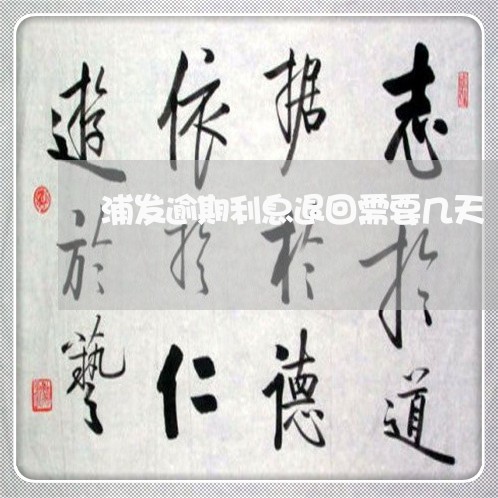 志於道
据於德
依於仁
遊於藝
浦发逾期利息退回需要几天